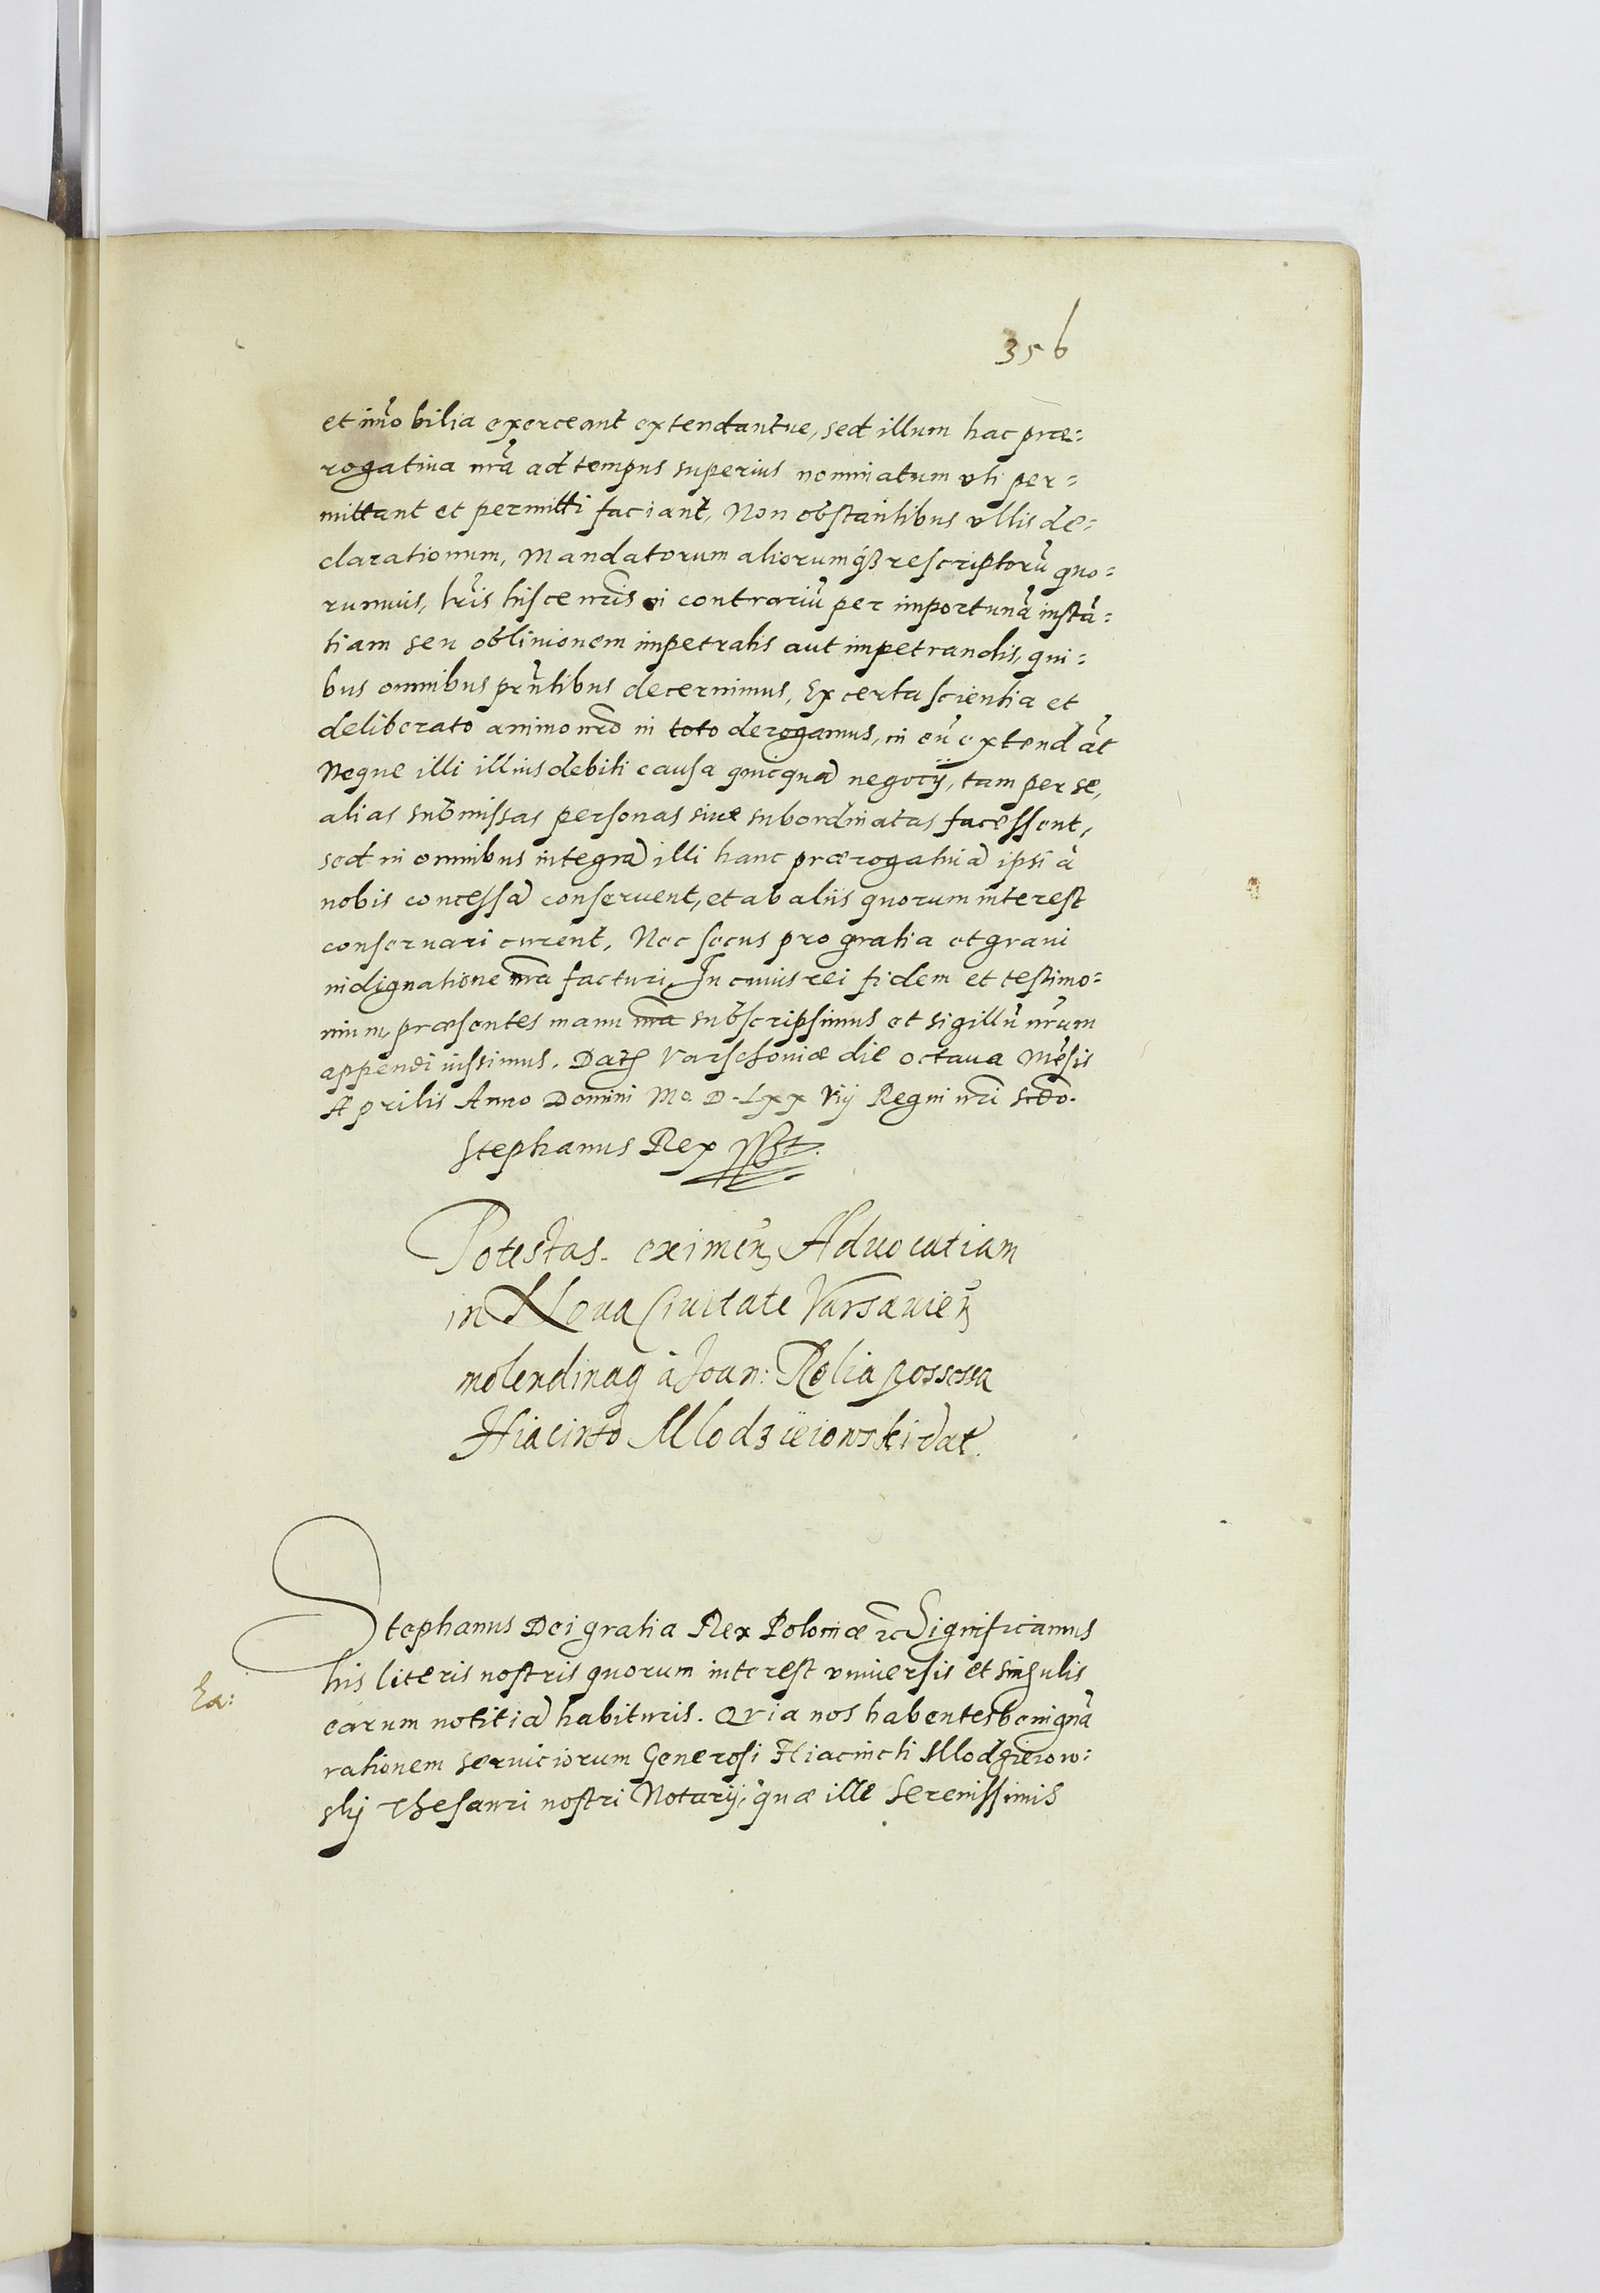 356
et im̃obilia exerceant extendantue, sed illum hac præ=
rogatiua nr̃a ad tempus superius nominatum vti per=
mittant et permitti faciant, Non obstantibus vllis de=
clarationum, Mandatorum aliorumq́ȝ rescriptorũ quo=
rumuis, lr̃is hisce nr̃is in contrariũ per importunã instã=
tiam seu obliuionem impetratis aut impetrandis, qui=
bus omnibus pr̃ntibus decernimus, Ex certa scientia et
deliberato animo nr̃o in toto derogamus, in eũ extendãt
Neque illi illius debiti causa quicquã negotij, tam per se,
alias submissas personas siue subordinatas facessent,
sed in omnibus integrã illi hanc prærogatiuã ipsi à
nobis concessã conseruent, et ab aliis quorum interest
conseruari curent, Nec secus pro gratia et graui
indignatione nr̃a facturi, In cuius rei fidem et testimo=
nium, præsentes manu nr̃a subscripsimus et sigillũ nr̃um
appendi iussimus. Datȝ Varschouiæ die octaua Mẽsis
Aprilis Anno Domini Mo. D. Lxx vij Regni nr̃i scđo.
Stephanus Rex sst.
Potestas eximeñ Aduocatiam
in Noua Ciuitate Varsauieñ
molendinaq à Joan: Relia possessa
Hiacinto Mlodzieiowski dat.
Stephanus Dei gratia Rex Poloniæ ꝛc Significamus
his literis nostris quorum interest vniuersis et singulis
Ea:
earum notitiã habituris. Qvia nos habentes benignã
rationem seruiciorum Generosi Hiacincti Mlodzieiow=
skij Thesauri nostri Notarij, quæ ille Serenissimis